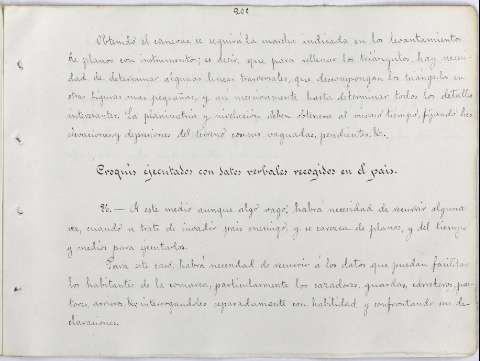 202
Obtenido el canevas se seguirá la marcha indicada en los levantamientos
de planos con instrumentos; es decir, que para rellenar los triángulos hay necesi-
dad de determinar algunas líneas trasversales, que descompongan los triángulos en
otras figuras mas pequeñas, y así sucesivamente hasta determinar todos los detalles
interesantes. La planimetría y nivelación deben obtenerse al mismo tiempo, fijando las
elevaciones y depresiones del terreno con sus vaguadas, pendientes, &.
Croquis ejecutados con datos verbales recogidos en el pais.
26. — A este medio aunque algo vago, habrá necesidad de recurrir alguna
vez, cuando se trate de invadir pais enemigo, y se carezca de planos, y del tiempo
y medios para ejecutarlos.
Para este caso, habrá necesidad de recurrir á los datos que puedan facilitar
los habitantes de la comarca, particularmente los cazadores, guardas, carreteros, pas-
tores, arrieros, & interrogandoles separadamente con habilidad y confrontando sus de-
claraciones.